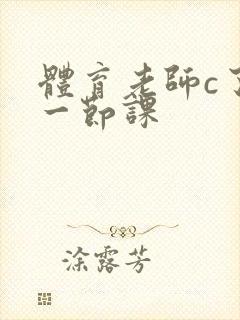 體育老師c了
一節課
涂露芳